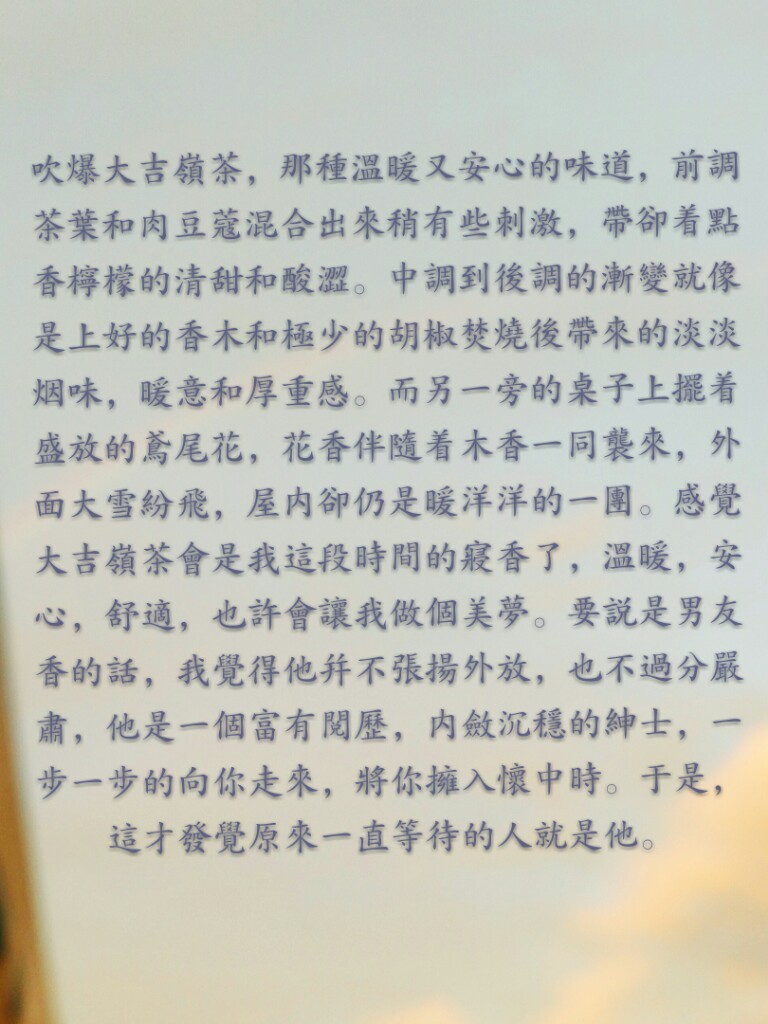 吹爆大吉嶺茶，那種溫暖又安心的味道，前調
茶葉和肉豆蔻混合出來稍有些刺激，帶卻着點
香檸檬的清甜和酸澀。中調到後調的漸變就像
是上好的香木和極少的胡椒焚燒後帶來的淡淡
烟味，暖意和厚重感。而另一旁的桌子上擺着
盛放的鳶尾花，花香伴隨着木香一同襲來，外
面大雪紛飛，屋内卻仍是暖洋洋的一團。感覺
大吉嶺茶會是我這段時間的寢香了，溫暖，安
心，舒適，也許會讓我做個美夢。要説是男友
香的話，我覺得他并不張揚外放，也不過分嚴
肅，他是一個富有閱歷，内斂沉穩的紳士，一
步一步的向你走來，將你擁入懷中時。于是，
這才發覺原來一直等待的人就是他。